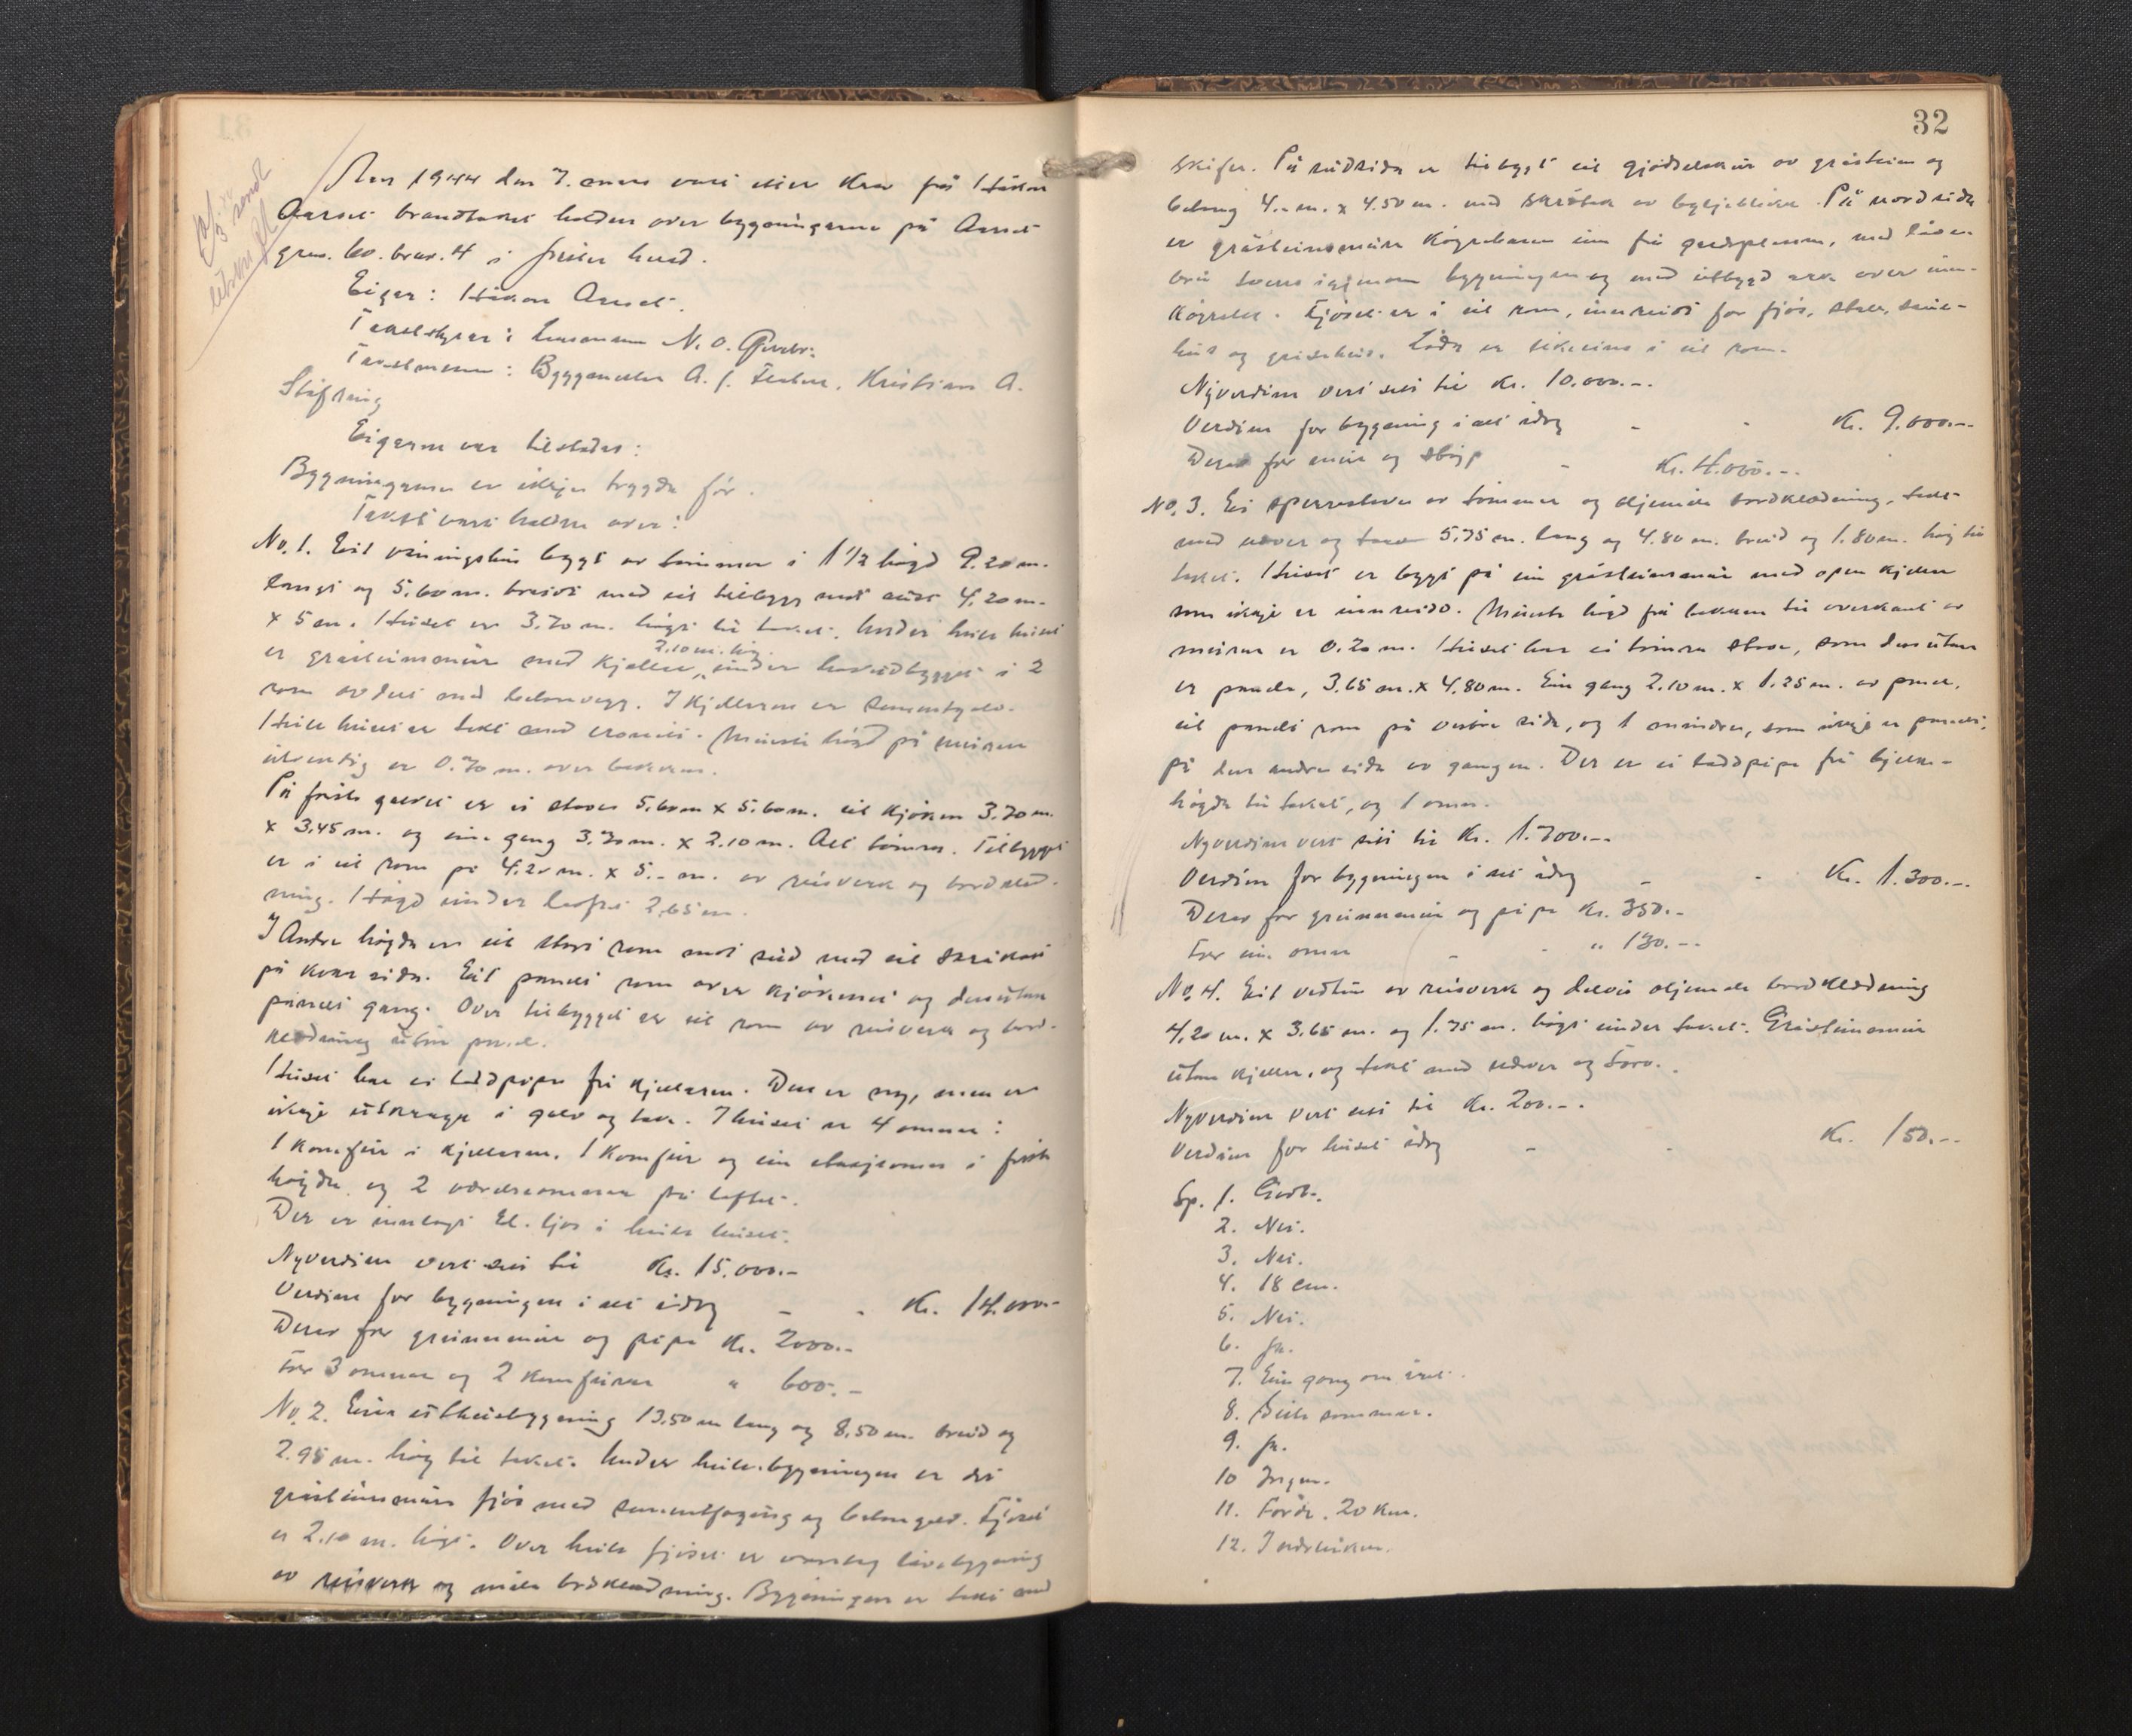 Aar 1944 den 7. mars vart etter krav frå Håkon
Aarset brandtakst halden over bygningarne på Aarset
grnr. 60. brnr. 4 i Førde herad.
Eigar: Håkon Aarset.
Takstskyrar: Lensmann N. O.
Takstmenn: Byggmester A. J. Kristian A.
Eigaren var tilstades:
Bygningarne er ikkje trygda før.
Takst vart halden over:
No. 1. Eit våningshus bygt av tømmer i 1 1/2 høgd 9.20 m.
langt og 5.60 m. breidt med eit tilbygg mot aust 4.20 m.
x 5 m. Huset er 3.70 m. høgt til taket. Under heile huset
2.10 m. høg
er gråsteinsmur med kjellar, under hovudbygget i 2
rom avdelt med betongvegg. I kjellaren er sementgolv.
Heile huset er tekt med eternit. Minste høgd på muren
utvendig er 0.70 m. over bakken.
På første golvet er ei stove 5.60 m x 5.60 m. eit kjøken 3.70 m.
x 3.45 m. og ein gang 3.70 m. x 2.10 m. Alt tømra. Tilbygget
er i eit rom på 4.20 m. x 5.- m. av reisverk og bordkled-
ning. Høgd under loftet 2.65 m.
I Andre høgda er eit stort rom mot sud med eit skråkott
på kvar side. Eit panelt rom over kjøkenet og desutan
panelt gang. Over tilbygget er eit rom av reisverk og bord-
kledning utan panel.
Huset har ei teglpipe frå kjellaren. Den er ny, men er
ikkje utkraga i golv og tak. I huset er 4 omnar:
1 komfyr i kjellaren, 1 komfyr og ein etasjeomn i første
høgda og 2 værelseomnar på loftet.
Der er innlagt El. ljos i heile huset.
Nyverdien vert sett til Kr. 15.000.-
Verdien for bygningen i alt idag - - Kr. 14.000.-
Derav for grunnmur og pipe Kr. 2000.-
For 3 omnar og 2 komfyrar " 600.-
No. 2. Ein uthusbygning 13.50 m lang og 8.50 m. breid og
2.95 m. høg til taket. Under heile bygningen er det
gråsteinsmura fjøs med sementfuging og betongolv. Fjøset
er 2.10 m. høgt. Over heile fjøset er vanleg løebygning
av reisverk og måla bordkledning. Bygningen er tekt med
32
skifer. På sudsida er tilbygt eit gjødselskur av gråstein og
betong 4.- m. x 4.50 m. med skråtak av bylgjeblikk. På nordsida
er gråsteinsmura køyrebane inn frå gardsplassen, med låve-
bru tvers igjennom bygningen og med utbygd ark over inn-
køyrslet. Fjøset er i eit rom, innreidt for fjøs, stall, saue-
hus og grisehus. Løda er likeeins i eit rom.
Nyverdien vert sett til Kr. 10.000.-.
Verdien for bygning i alt idag - - Kr. 9.000.-
Derav for mur og Kr. 4.000.-.
No. 3. Ei sperrestove av tømmer og oljemåla bordkledning, tekt
med never og torv 5.75 m. lang og 4.80 m. breid og 1.80 m. høg til
taket. Huset er bygt på ein gråsteinsmur med open kjellar
som ikkje er innreidd. Minste høgd frå bakken til overkant av
muren er 0.20 m. Huset har ei tømra stove, som desutan
er panela, 3.65 m. x 4.80 m. Ein gang 2.10 m. x 1.25 m. av panel,
eit panelt rom på vestre side, og 1 mindre, som ikkje er panelt,
på den andre sida av gangen. Der er ei teglpipe frå kjellar-
høgda til taket, og 1 omn.
Nyverdien vert sett til Kr. 1.700.-.
Verdien for bygningen i alt idag - - Kr. 1.300.-.
Derav for grunnmur og pipe Kr. 350.-
For ein omn - - " 130.-.
No. 4. Eit vedhus av reisverk og delvis oljemåla bordkledning
4.20 m. x 3.65 m. og 1.75 m. høgt under taket. Gråsteinsmur
utan kjellar, og tekt med never og torv.
Nyverdien vert sett til Kr. 200.-.
Verdien for huset idag - - Kr. 150.-
Sp. 1. Godt.
2. Nei.
3. Nei.
4. 18 cm.
5. Nei.
6. Ja.
7. Ein gang om året.
8. Siste sommar.
9. Ja.
10 Ingen.
11. Førde. 20 km.
12.